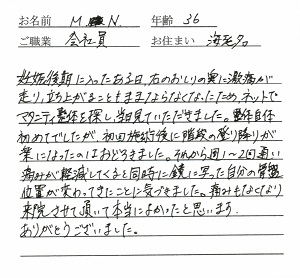 お名前 M N. 年齢 36
ご職業 会社員 お住まい 海老名
妊娠後期に入ったある日、右のおしりの奥に激痛が
走り、立ち上がることもままならなくなったため、ネットで
マタニティ整体を探し、当日見ていただきました。整体自体
初めてでしたが、初回施術後に階段の登り降りが
楽になったのはおどろきました。それから週1〜2回通い
痛みが軽減してくると同時に鏡に写った自分の骨盤
位置が変わってきたことに気づきました。痛みもなくなり
来院させて頂いて本当によかったと思います。
ありがとうございました。